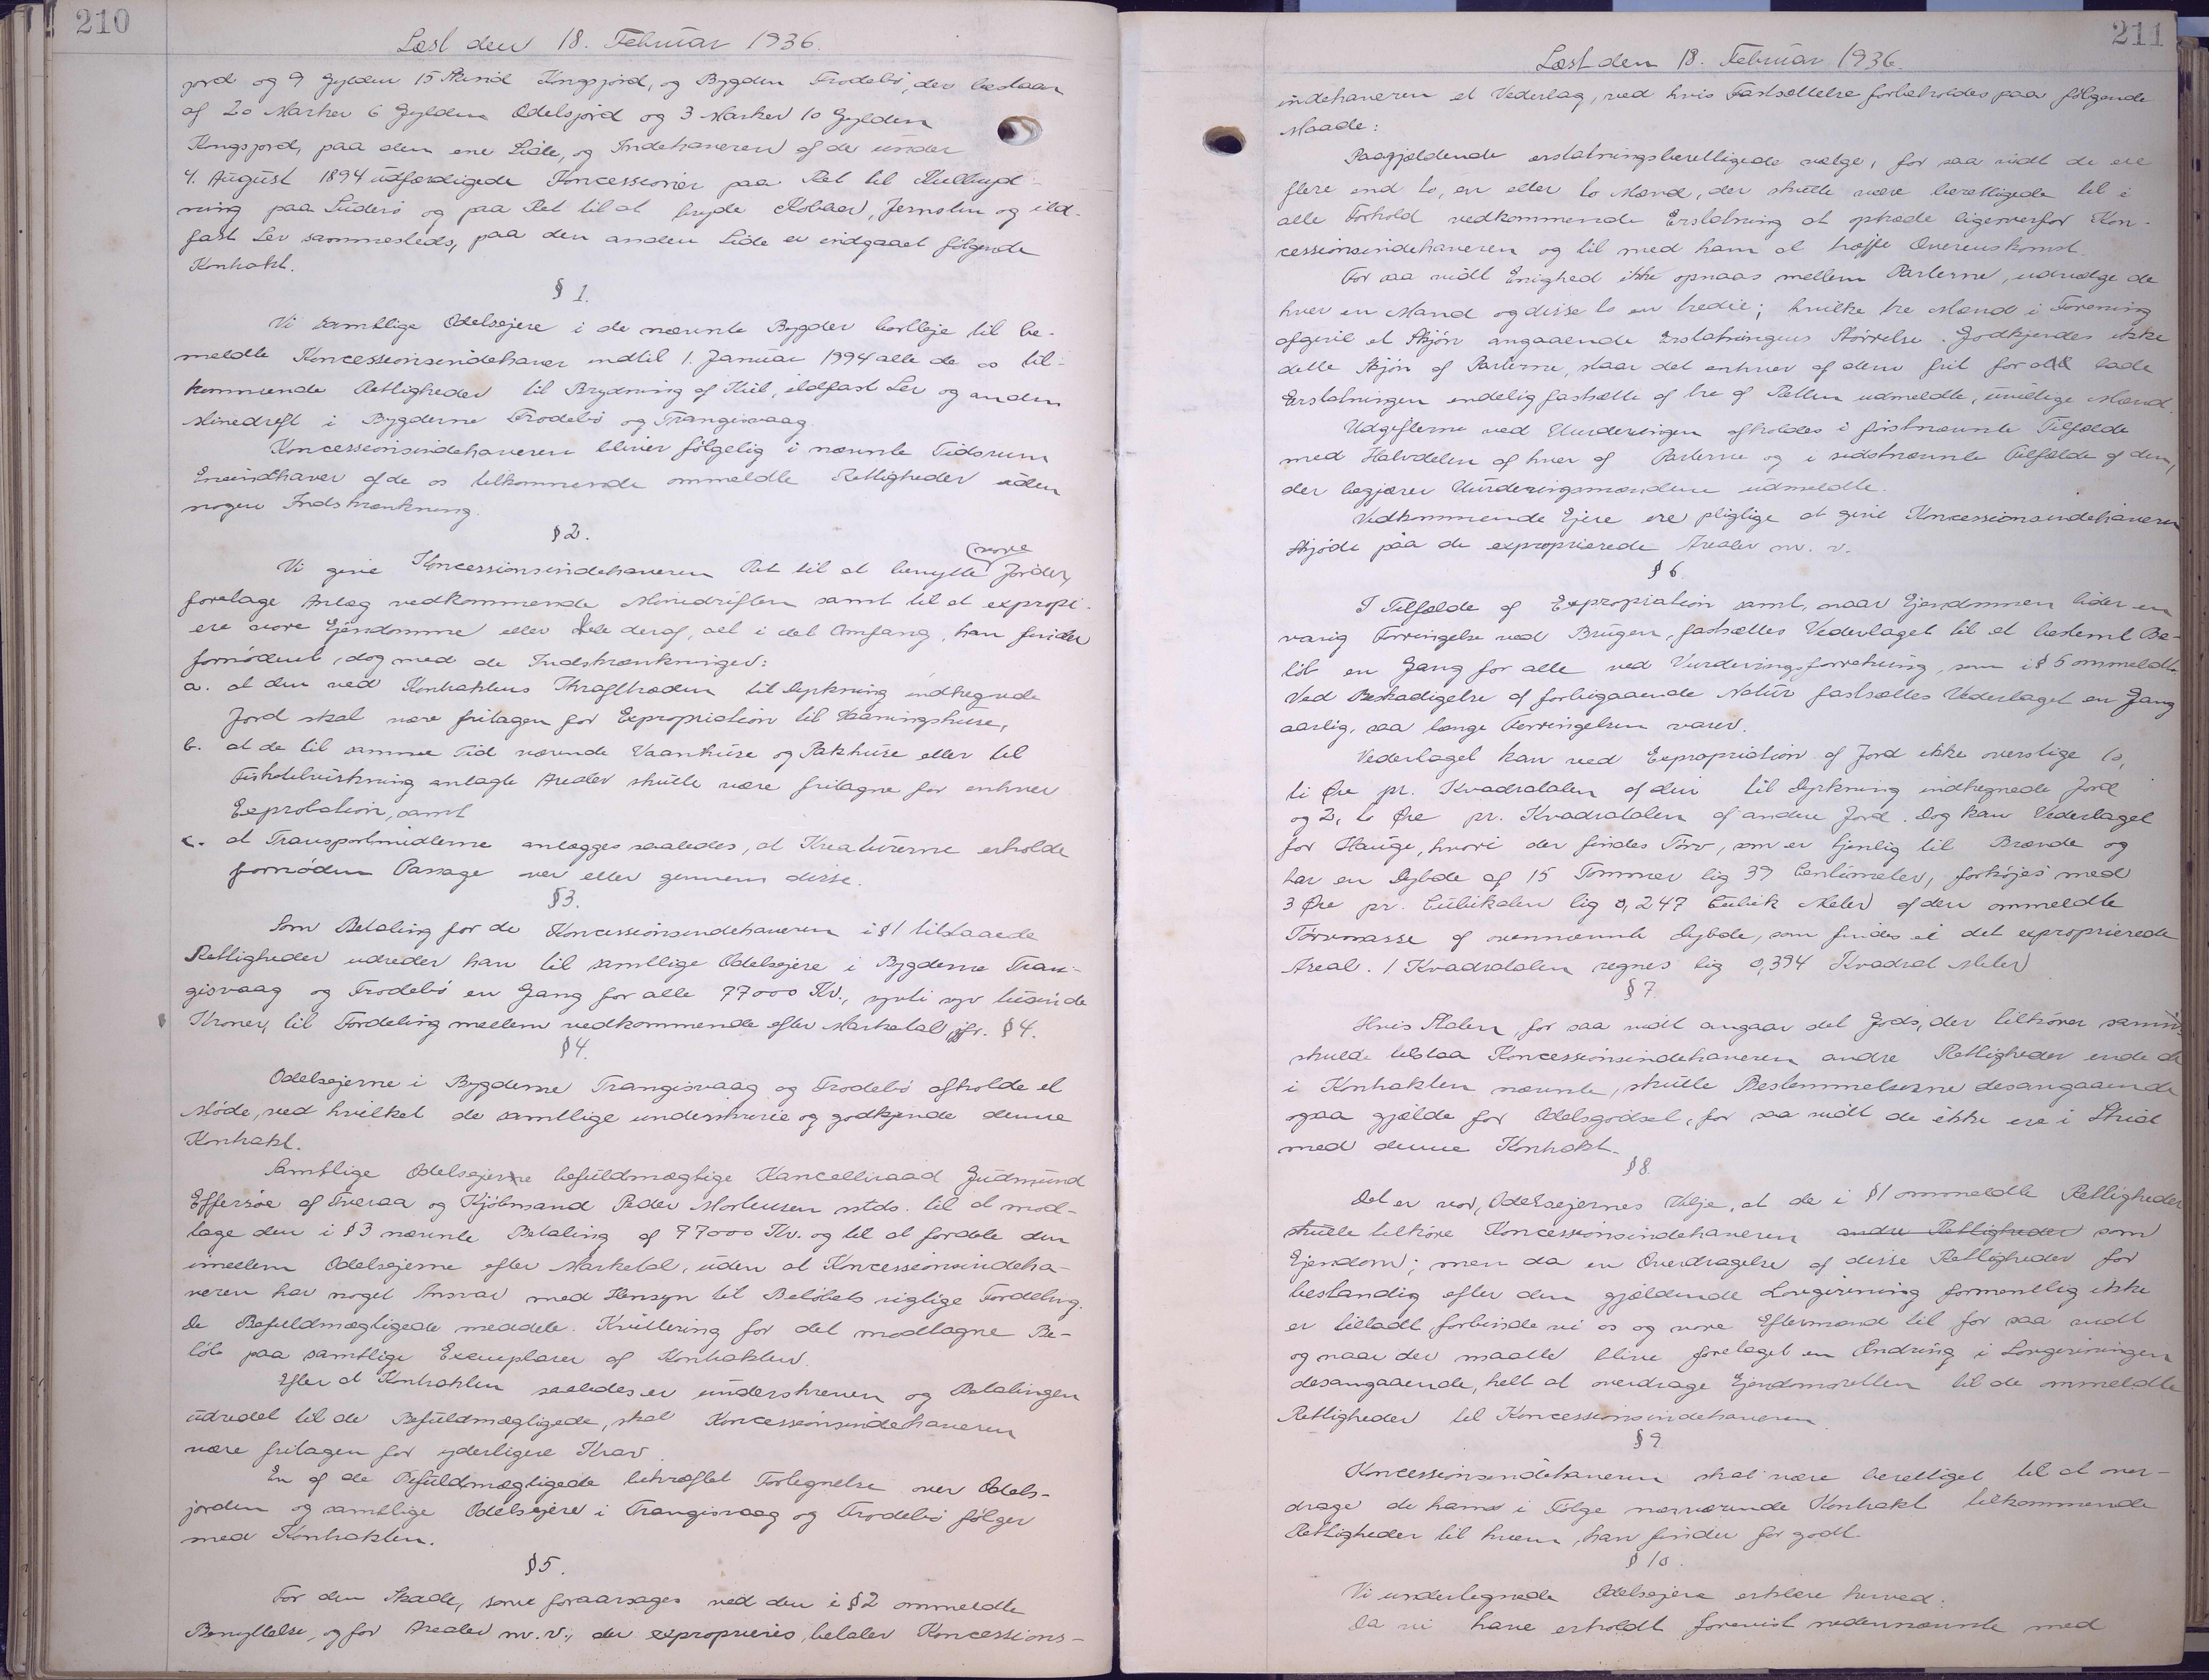 210
Læst den 18. Februar 1936.
jord og 9 Gylden 15 Skind Kongsjord, og Bygden Frodebö, der bestaar
af 20 Marker 6 Gylden Odelsjord og 3 Marker 10 Gylden
Kongsjord, paa den ene Side, og Indehaveren af de under
4. August 1894 udfærdigede Koncessioner paa Ret til Kulbryd-
ning paa Suderö og paa Ret til at bryde Kobber, Jernsten og ild-
fast Ler sammesteds, paa den anden Side er indgaaet følgende
Kontrakt.
§ 1.
Vi samtlige Odelsejere i de nævnte Bygder bortleje til be-
meldte Koncessionsindehaver indtil 1. Januar 1994 alle de os til-
kommende Rettigheder til Brydning af Kul, ildfast Ler og anden
Minedrift i Bygderne Frodebö og Trangisvaag.
Koncessionsindehaveren bliver fölgelig i nævnte Tidsrum
Eneindhaver af de os tilkommende ommeldte Rettigheder uden
nogen Indskrænkning.
§ 2.
Vi give Koncessionsindehaveren Ret til at benytte vore Jorder,
foretage Anlæg vedkommende Minedriften samt til at expropi-
ere vore Ejendomme eller Dele deraf, alt i det Omfang, han finder
fornödent, dog med de Indskrænkninger:
a. at den ved Kontraktens Ikrafttræden til Dyrkning indhegnede
Jord skal være fritagen for Expropriation til Vaaningshuse,
b. at de til samme Tid værende Vaanhuse og Pakhuse eller til
Fisketilvirkning anlagte Arealer skulle være fritagne for enhver
Exprotation, samt
c. at Transportmidlerne anlægges saaledes, at Kreaturerne erholde
fornöden Passage over eller gennem disse.
§ 3.
Som Betaling for de Koncessionsindehaveren i § 1 tilstaaede
Rettigheder udreder han til samtlige Odelsejere i Bygderne Tran-
gisvaag og Frodebö en Gang for alle 77000 Kr., syvti syv tusinde
Kroner, til Fordeling mellem vedkommende efter Marketal, jfr. § 4.
§ 4.
Odelsejerne i Bygderne Trangisvaag og Frodebö afholde et
Möde, ved hvilket de samtlige underskrive og godkjende denne
Kontrakt.
Samtlige Odelsejerne befuldmægtige Kancelliraad Gudmund
Effersøe af Tveraa og Kjöbmand Peder Mortensen sstds. til at mod-
tage den i § 3 nævnte Betaling af 77000 Kr. og til at fordele den
imellem Odelsejerne efter Marketal, uden at Koncessionsindeha-
veren har noget Ansvar med Hensyn til Belöbets rigtige Fordeling.
De Befuldmægtigede meddele Kvittering for det modtagne Be-
löb paa samtlige Exemplarer af Kontrakten.
Efter at Kontrakten saaledes er underskreven og Betalingen
udredet til de Befuldmægtigede, skal Koncessionsindehaveren
være fritagen for yderligere Krav.
En af de Befuldmægtigede bekræftet Fortegnelse over Odels-
jorden og samtlige Odelsejere i Trangisvaag og Frodebö fölger
med Kontrakten.
§ 5.
For den Skade, som foraarsages ved den i § 2 ommeldte
Benyttelse, og for Arealer m.v., der exproprieres, betaler Koncessions-
211
Læst den 18. Februar 1936.
indehaveren et Vederlag, ved hvis Fastsættelse forbeholdes paa fölgende
Maade:
Paagjældende erstatningsberettigede vælge, for saa vidt de ere
flere end to, en eller to Mænd, der skulle være berettigede til i
alle Forhold vedkommende Erstatning at optræde ligeoverfor Kon-
cessionsindehaveren og til med ham at træffe Overenskomst.
For saa vidt Enighed ikke opnaas mellem Parterne, udvælge de
hver en Mand og disse to en tredie; hvilke tre Mænd i Forening
afgive et Skjön angaaende Erstatningens Störrelse. Godkjendes ikke
dette Skjön af Parterne, staar det enhver af dem frit for at lade
Erstatningen endelig fastsætte af tre af Retten udmeldte, uvillige Mænd.
Udgifterne ved Vurderingen afholdes i förstnævnte Tilfælde
med Halvdelen af hver af Parterne og i sidstnævnte Tilfælde af den,
der begjærer Vurderingsmændene udmeldte.
Vedkommende Ejere ere pligtige at give Koncessionsindehaveren
Skjöde paa de exproprierede Arealer m. v.
§ 6.
I Tilfælde af Expropriation samt, naar Ejendommen lider en
varig Forringelse ved Brugen, fastsættes Vederlaget til et bestemt Be-
löb en Gang for alle ved Vurderingsforretning, som i § 5 ommeldt.
Ved Beskadigelse af forbigaaende Natur fastsættes Vederlaget en Gang
aarlig, saa længe Forringelsen varer.
Vederlaget kan ved Expropriation af Jord ikke overstige 10,
ti Øre pr. Kvadratalen af den til Dyrkning indhegnede Jord
og 2, to Øre pr. Kvadratalen af anden Jord. Dog kan Vederlaget
for Hauge, hvori der findes Törv, som er tjenlig til Brænde og
har en Dybde af 15 Tommer lig 39 Centimeter, forhöjes med
3 Øre pr. Cubikalen lig 0,247 Cubik Meter af den ommeldte
Törvmasse af ovennævnte Dybde, som findes i det exproprierede
Areal. 1 Kvadratalen regnes lig 0,394 Kvadrat Meter
§ 7
Hvis Staten, for saa vidt angaar det Gods, der tilhörer samme
skulde tilstaa Koncessionsindehaveren andre Rettigheder ende de
i Kontrakten nævnte, skulle Bestemmelserne desangaaende
ogaa gjælde for Odelsgodset, for saa vidt de ikke ere i Strid
med denne Kontrakt.
§ 8.
Det er vor, Odelsejernes Vilje, at de i § 1 ommeldte Rettigheder
skulle tilhöre Koncessionsindehaveren andre Rettigheder som
Ejendom; men da en Overdragelse af disse Rettigheder for
bestandig efter den gjældende Lovgivning formentlig ikke
er tilladt, forbinde vi os og vore Eftermænd til for saa vidt
og naar der maatte blive foretaget en Ændring i Lovgivningen
desangaaende, helt at overdrage Ejendomsretten til de ommeldte
Rettigheder til Koncessionsindehaveren
§ 9
Koncessionsindehaveren skal være berettiget til at over-
drage de ham i Fölge nærværende Kontrakt tilkommende
Rettigheder til hvem, han finder for godt.
§ 10.
Vi undertegnede Odelsejere erklære herved:
Da vi have erholdt forevist nedennævnte med